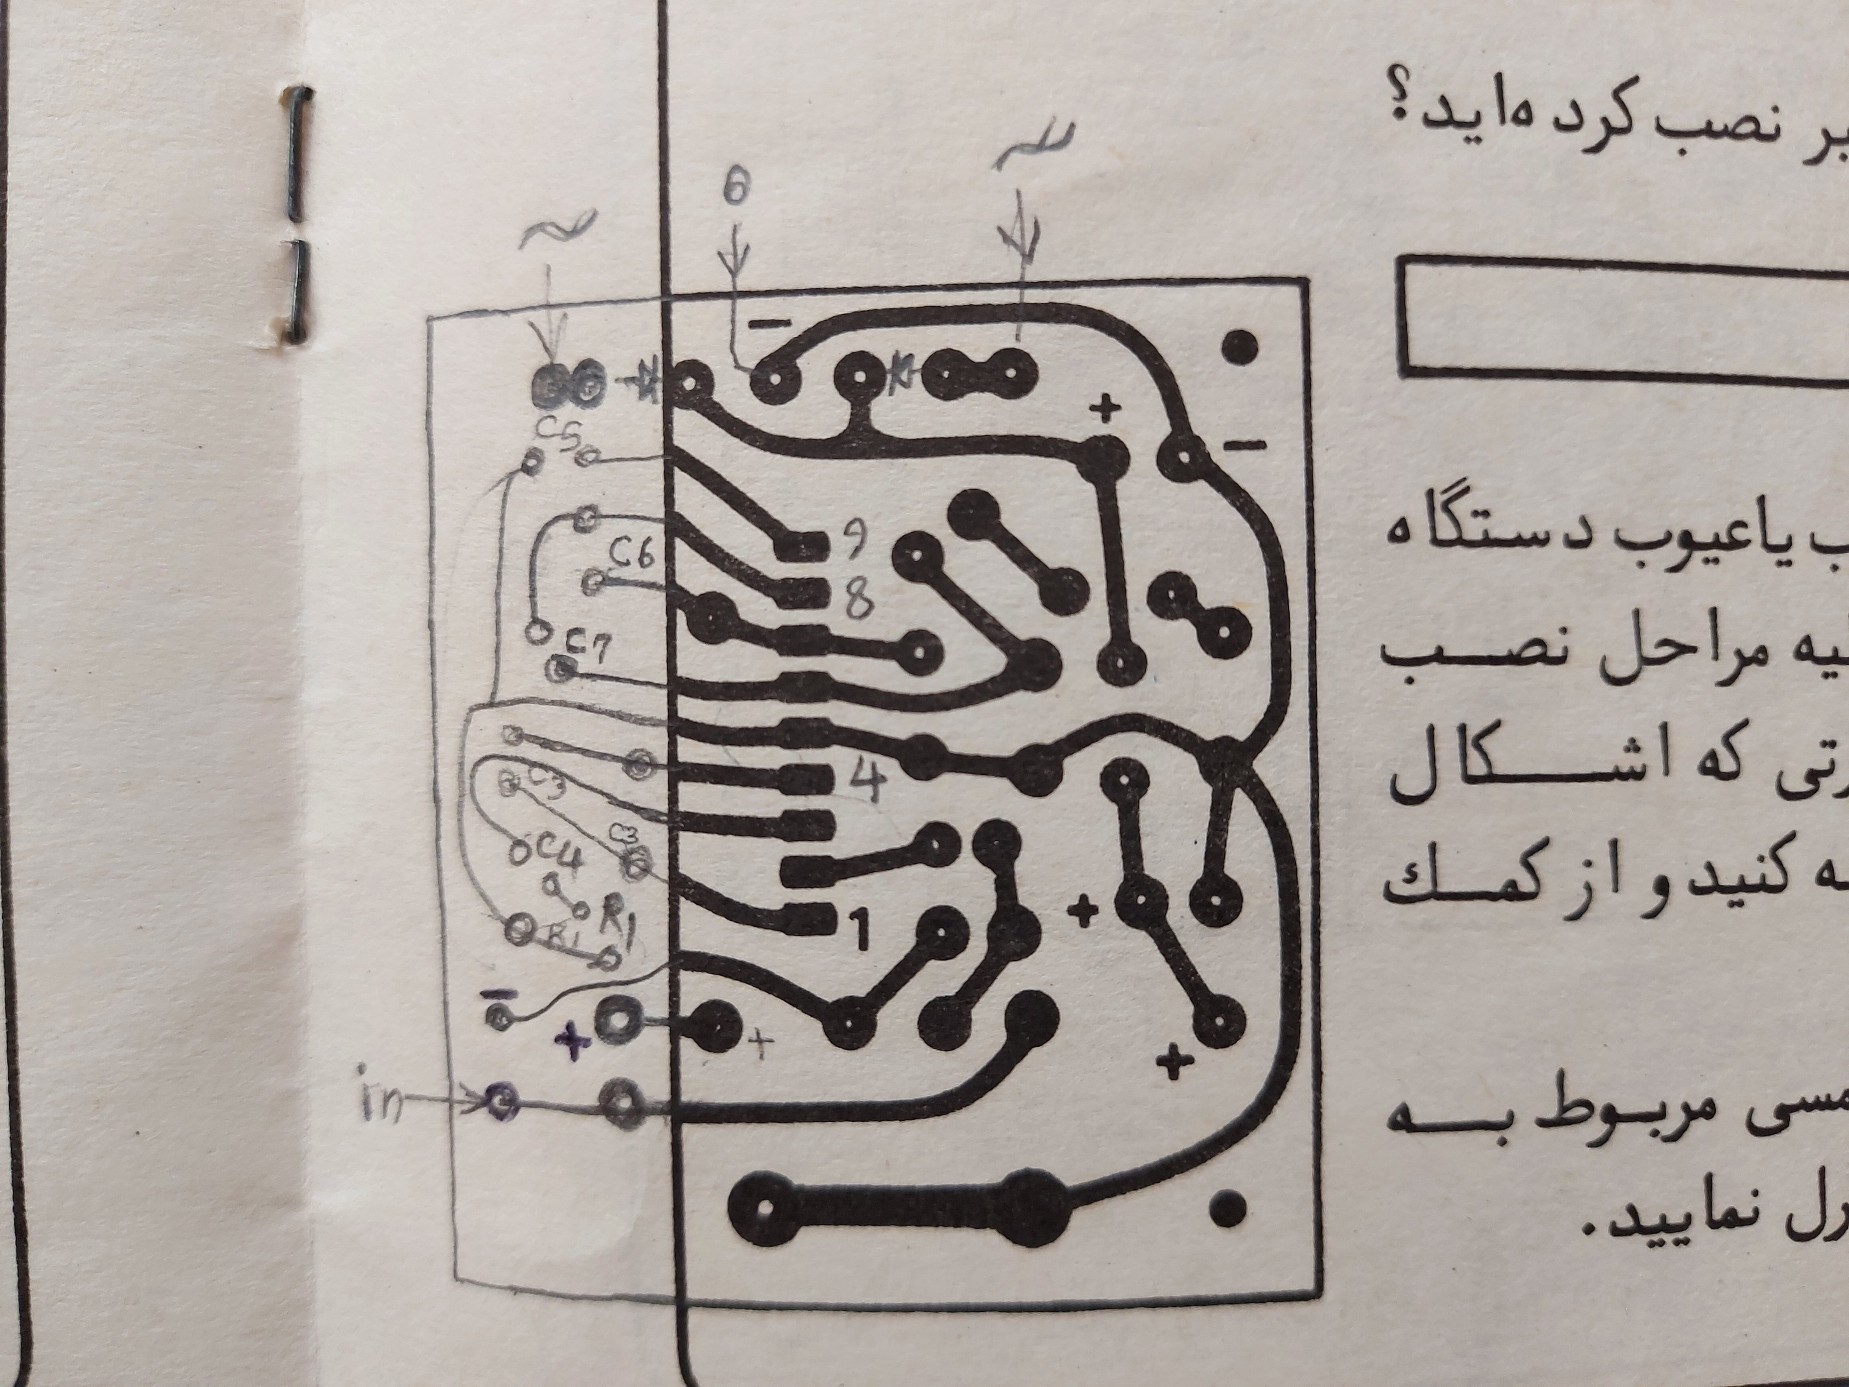 بر نصب کرده‌اید؟
ب یا عیوب دستگاه
لیه مراحل نصب
رتی که اشکال
ه کنید و از کمک
مسی مربوط به
رل نمایید.
~
θ
~
−
+
−
C5
9
C6
8
C7
4
C3
C3
C4
R1
R1
+
1
−
+
+
+
in